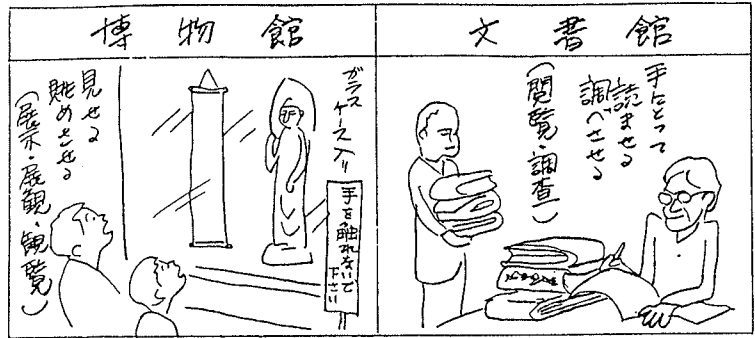 博物館
見せる
眺めさせる
（展示・展観・観覧）
ガラス
ケース入り
手を触れないで
下さい
文書館
手にとって
読ませる
調べさせる
（閲覧・調査）